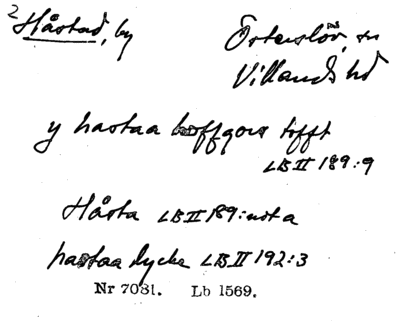 2 Håstad, by
Österslöv, sn
Villands hd
y hastaa hoffgors tofft
LB II 189:9
Håsta LB II 189: not a
hastaa lycke LB II 192:3
Nr 7031. Lb 1569.